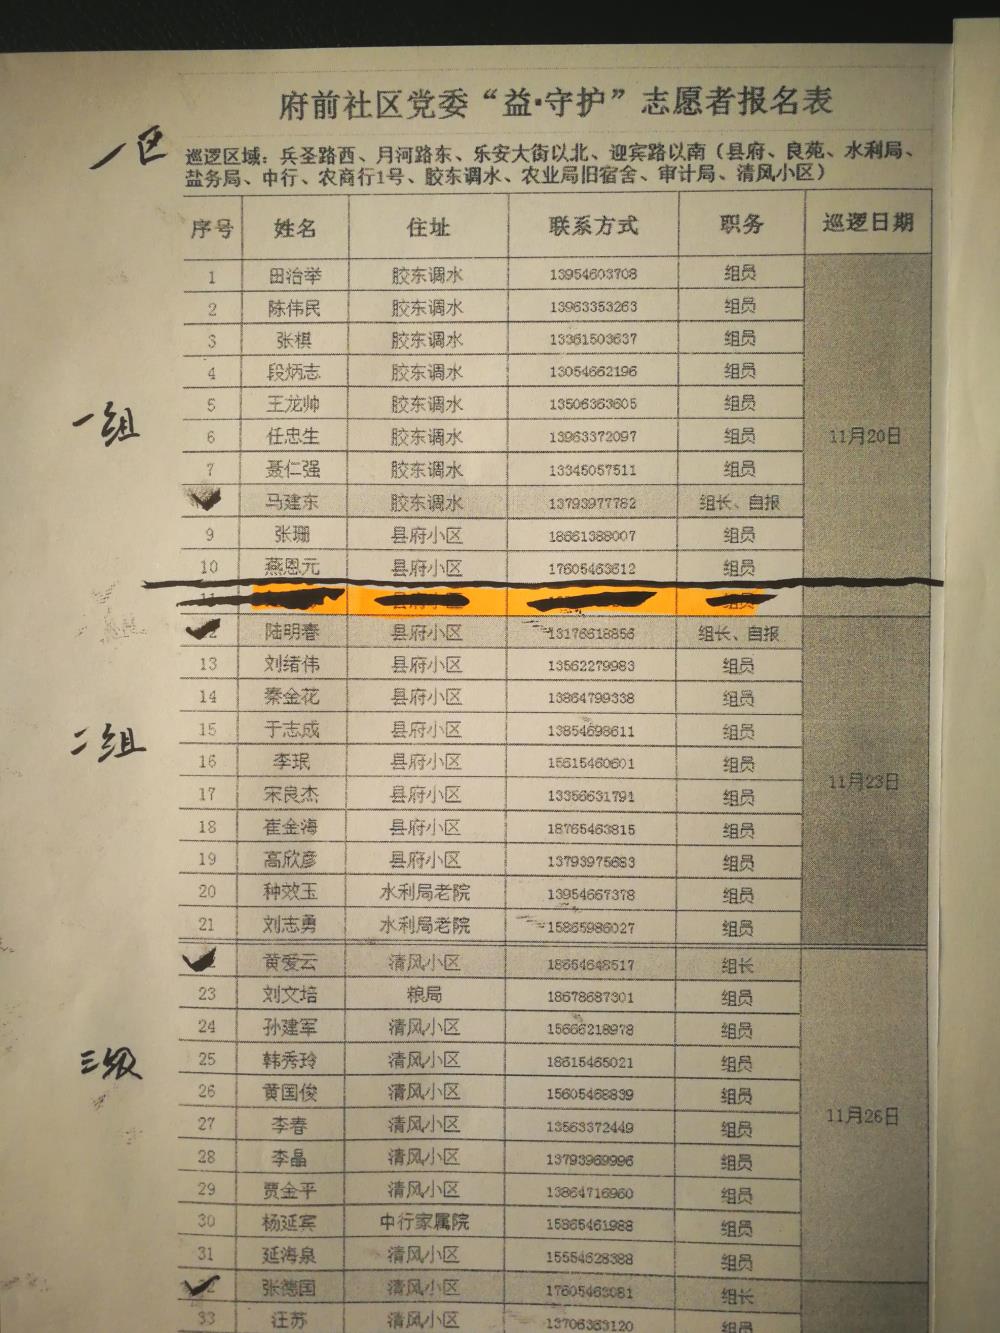 府前社区党委“益·守护”志愿者报名表
一区
巡逻区域：兵圣路西、月河路东、乐安大街以北、迎宾路以南（县府、良苑、水利局、
盐务局、中行、农商行1号、胶东调水、农业局旧宿舍、审计局、清风小区）
序号 姓名 住址 联系方式 职务 巡逻日期
1 田治举 胶东调水 13954603708 组员
2 陈伟民 胶东调水 13963353263 组员
3 张棋 胶东调水 13361503637 组员
4 段炳志 胶东调水 13054662196 组员
5 王龙帅 胶东调水 13506363605 组员
一组
6 任忠生 胶东调水 13963372097 组员 11月20日
7 聂仁强 胶东调水 13345057511 组员
马建东 胶东调水 13793977782 组长、自报
9 张珊 县府小区 18661388007 组员
10 燕恩元 县府小区 17605463612 组员
11 县府小区 组员
陆明春 县府小区 13176618856 组长、自报
13 刘绪伟 县府小区 13562279983 组员
14 秦金花 县府小区 13864799338 组员
15 于志成 县府小区 13854698611 组员
二组
16 李珉 县府小区 15615460601 组员
17 宋良杰 县府小区 13356631791 组员 11月23日
18 崔金海 县府小区 18765463815 组员
19 高欣彦 县府小区 13793975683 组员
20 种效玉 水利局老院 13954667378 组员
21 刘志勇 水利局老院 15865986027 组员
黄爱云 清风小区 18654648517 组长
23 刘文培 粮局 18678687301 组员
24 孙建军 清风小区 15666218978 组员
25 韩秀玲 清风小区 18615465021 组员
三级
26 黄国俊 清风小区 15605468839 组员
27 李春 清风小区 13563372449 组员 11月26日
28 李晶 清风小区 13793969996 组员
29 贾金平 清风小区 13864716960 组员
30 杨延宾 中行家属院 15865461988 组员
31 延海泉 清风小区 15554628388 组员
张德国 清风小区 17605463081 组长
33 汪苏 清风小区 13706383120 组员